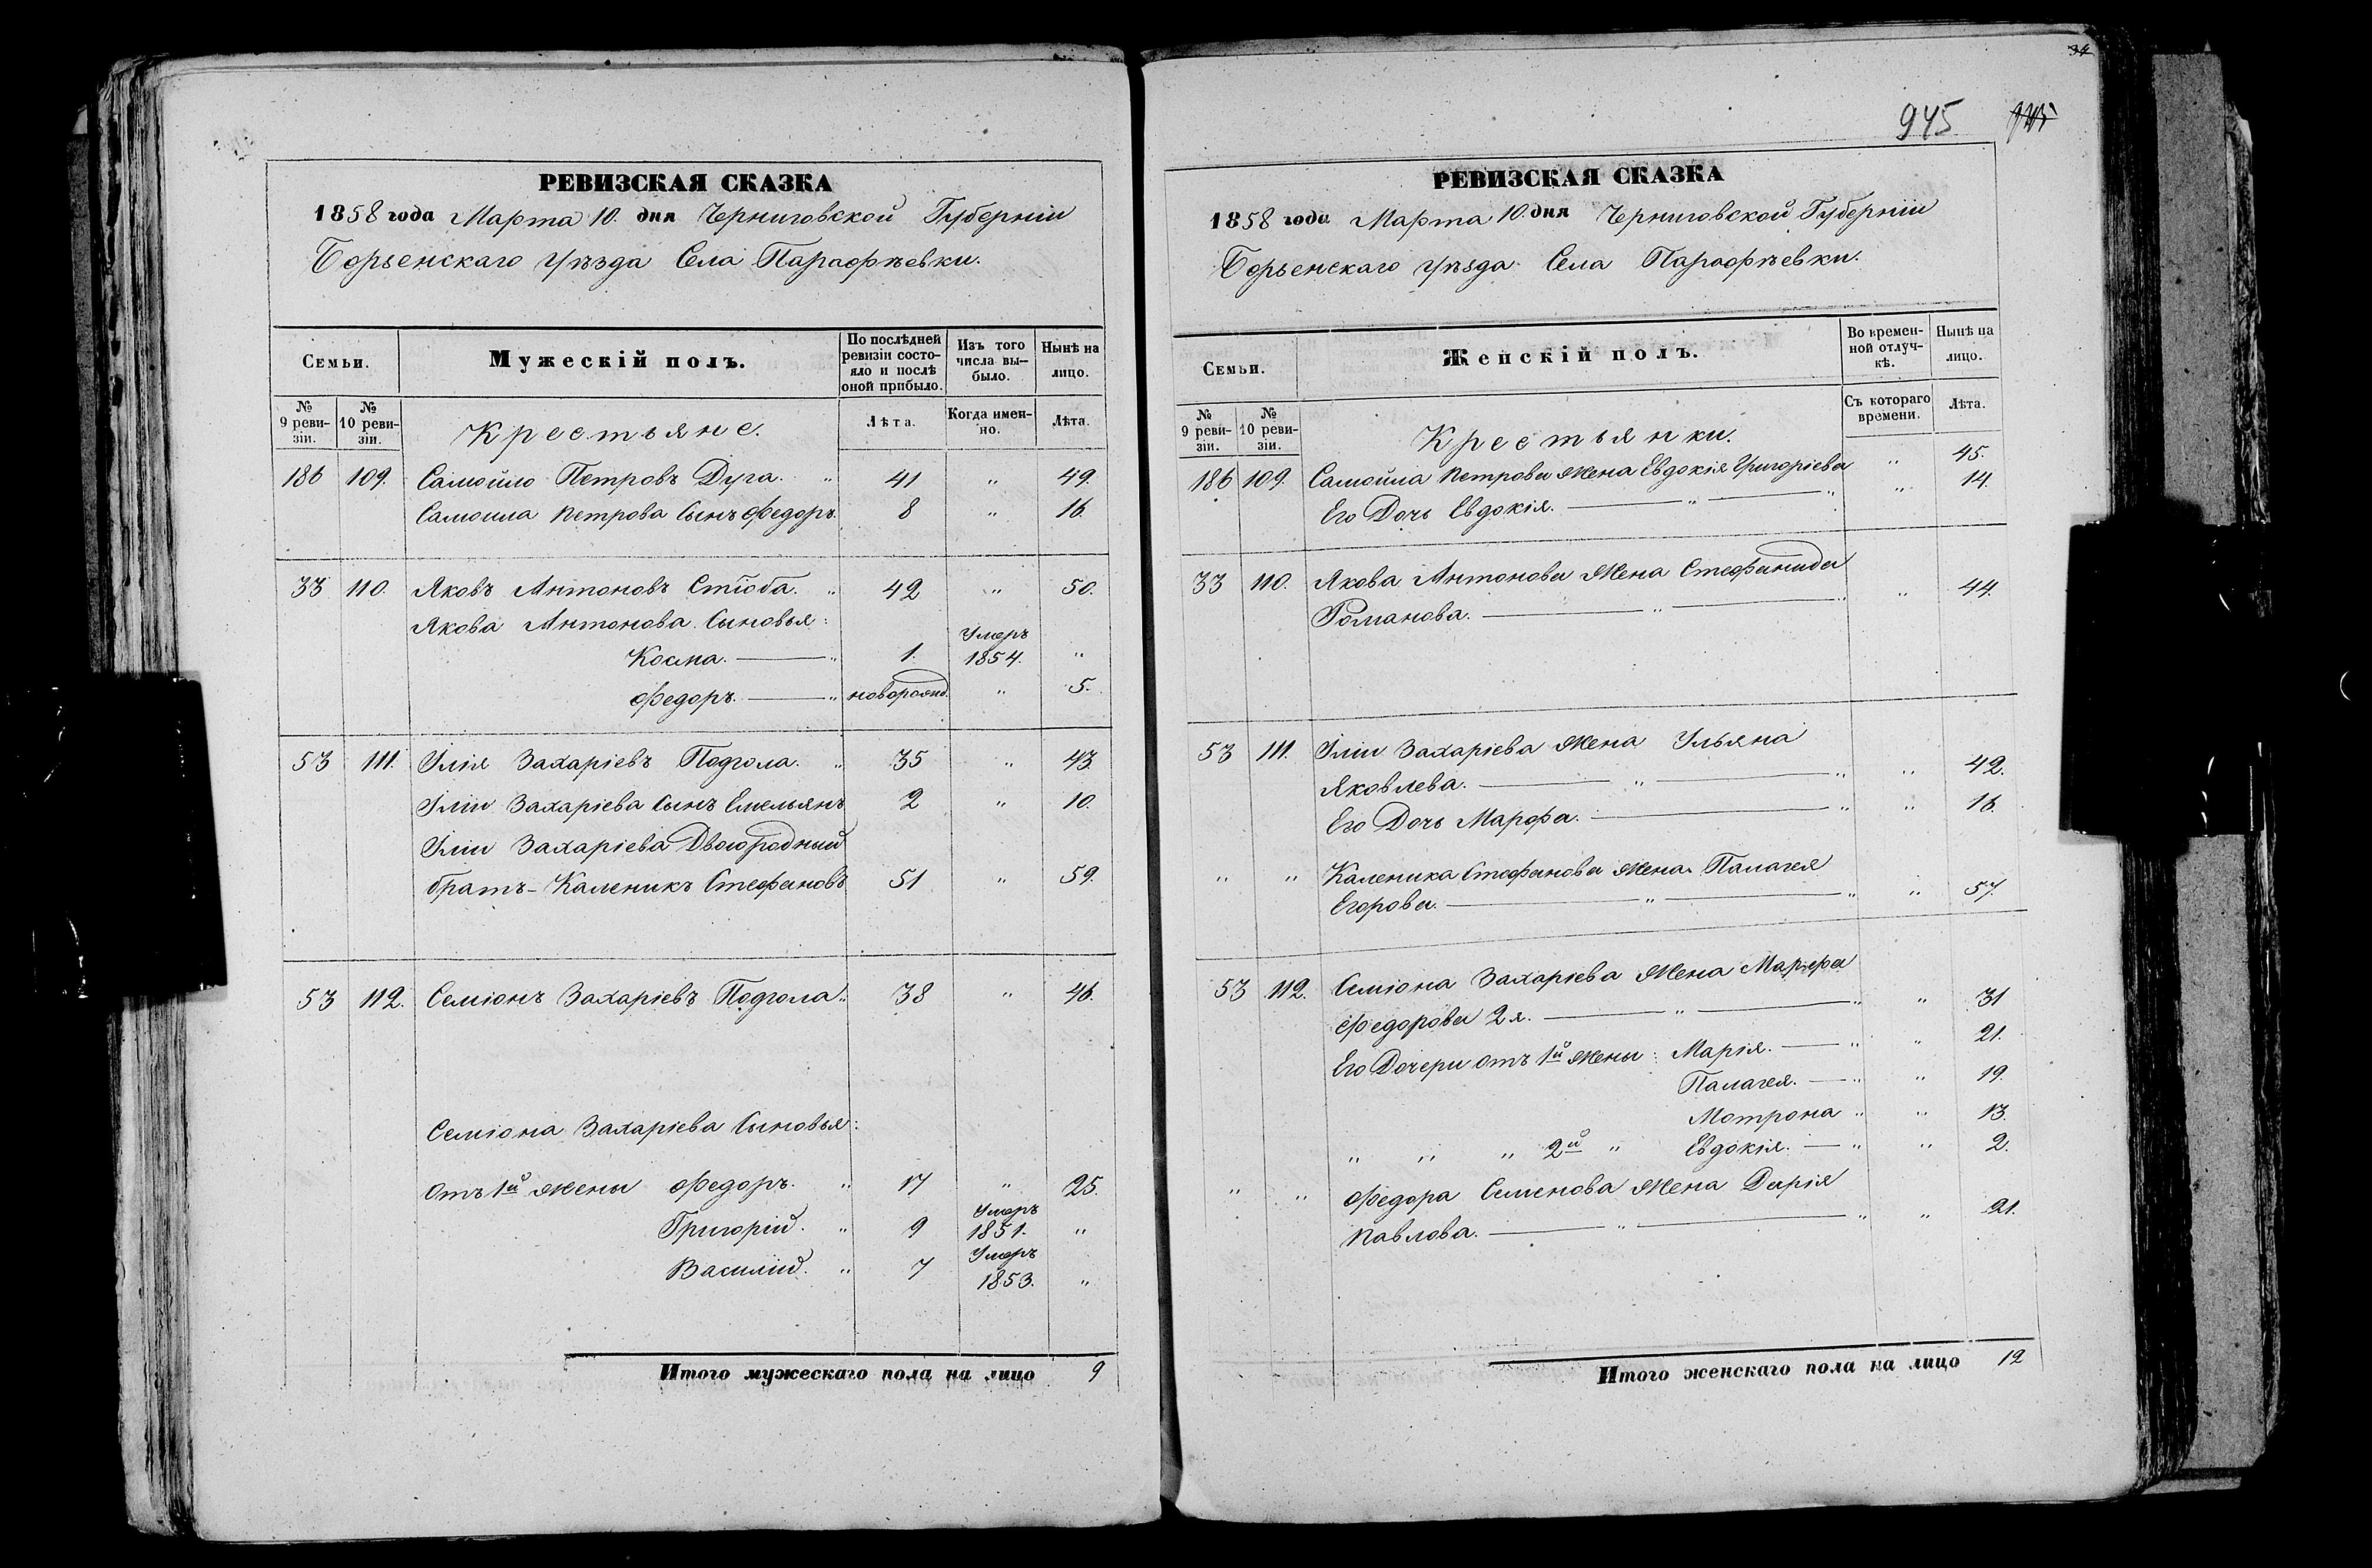 РЕВИЗСКАЯ СКАЗКА
1858 года Марта 10. дня Черниговской Губерніи
Борзенскаго Уѣзда Села Парафѣевки.
Семьи.
Мужескій полъ.
По послѣдней ревизіи состояло и послѣ оной прибыло.
Изъ того числа вы-было.
Нынѣ на лицо.
№ 9 реви-зіи.
№ 10 реви-зіи.
Крестьяне.
Лѣта.
Когда имен-но.
Лѣта.
186 109. Самойло Петровъ Дуга. " 41 " 49.
Самоила Петрова Сынъ Федоръ. 8 " 16.
33 110. Яковъ Антоновъ Стіоба. " 42 " 50.
Якова Антонова Сыновья:
Косма. — " 1. Умеръ 1854. "
Федоръ. — " новорожд. " 5.
53 111. Илія Захаріевъ Подгола. " 35 " 43.
Иліи Захаріева Сынъ Емельянъ 2 " 10.
Иліи Захаріева Двоюродный
братъ - Каленикъ Стефановъ 51 " 59.
53 112. Семіонъ Захаріевъ Подгола " 38 " 46.
Семіона Захаріева Сыновья:
Отъ 1й жены Федоръ. " 17 " 25.
Григорій. " 9 Умеръ 1851. "
Василій. " 7 Умеръ 1853. "
Итого мужескаго пола на лицо 9
945
РЕВИЗСКАЯ СКАЗКА
1858 года Марта 10. дня Черниговской Губерніи
Борзенскаго Уѣзда Села Парафѣевки.
Семьи.
Женскій полъ.
Во времен-ной отлуч-кѣ.
Нынѣ на лицо.
№ 9 реви-зіи.
№ 10 реви-зіи.
Крестьянки.
Съ котораго времени.
Лѣта.
186 109. Самойла Петрова Жена Евдокія Григоріева " 45.
Его Дочь Евдокія. — " — " " 14.
33 110. Якова Антонова Жена Стефанида
Романова. — " — " " 44.
53 111. Иліи Захаріева Жена Ульяна
Яковлева. — " — " " 42.
Его Дочь Марфа. — " " 16.
" " Каленика Стефанова Жена Палагея
Егорова. — " — " " 57.
53 112. Семіона Захаріева Жена Марфа
Федорова 2я. — " — " " 31
Его Дочери отъ 1й Жены: Марія. — " " 21.
Палагея. — " " 19.
Мотрона " " 13.
" " " 2й " Евдокія. — " " 2.
" " Федора Семенова Жена Дарія
Павлова. — " — " " 21.
Итого женскаго пола на лицо 12